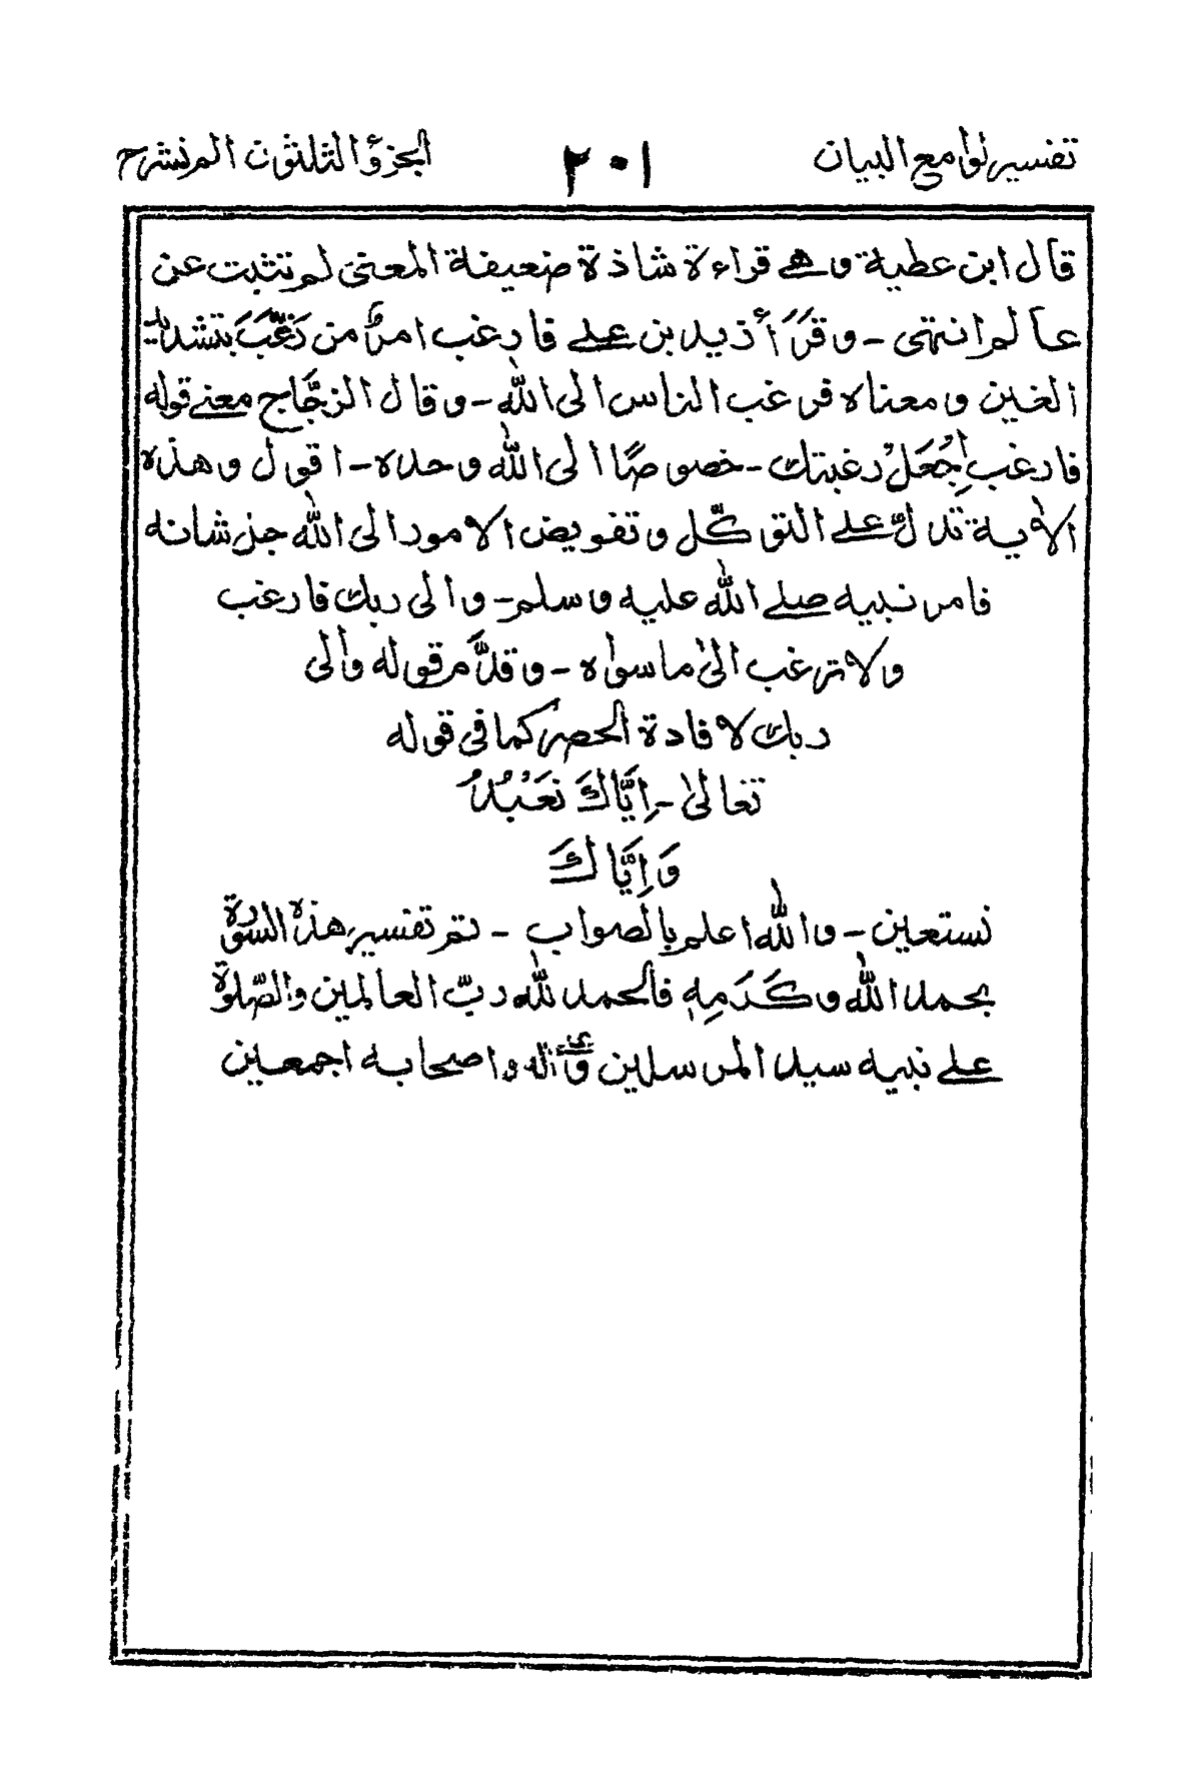 تفسير لوامع البيان ٢٠١ الجزؤ الثلثون الم نشرح
قال ابن عطية وهي قراءة شاذة ضعيفة المعنى لم تثبت عن
عالم انتهى - وقَرَأَ زيد بن علي فارغب امرٌ من رَغَّبَ بتشديد
الغين ومعناه فرغب الناس الى اللٰه - وقال الزجَّاج معنے قوله
فارغب اِجْعَلْ رغبتك - خصوصًا الى اللٰه وحده - اقول وهذه
الاٰية تدلّ علے التوكّل وتفويض الامور الى اللٰه جل شانه
فامر نبيه صلے اللٰه عليه وسلم - والى ربك فارغب
ولا ترغب الىٰ ما سواه - وقدَّم قوله والىٰ
ربك لافادة الحصر كما فى قوله
تعالىٰ - اِيَّاكَ نَعْبُدُ
وَاِيَّاكَ
نستعين - واللٰه اعلم بالصواب - تم تفسير هذه السورة
بحمد اللٰه وكَرَمِهٖ فالحمد للٰه ربّ العالمين والصّلوة
علے نبيه سيد المرسلين وعلى اٰله واصحابه اجمعين